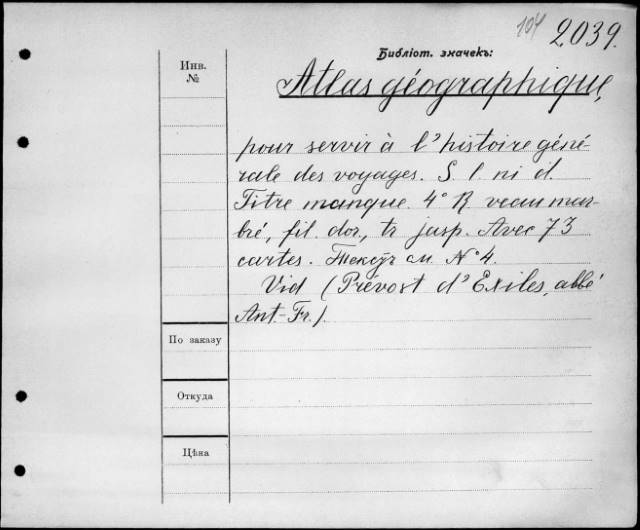 104 2039.
Библіот. значекъ:
Инв.
№
Atlas géographique,
pour servir à l'histoire géné-
rale des voyages. S. l. ni d.
Titre manque. 4° R. veau mar-
bré, fil. dor., tr. jasp. Avec 73
cartes. см. № 4.
Vid (Prévost d'Exiles, abbé
Ant.-Fr.).
По заказу
Откуда
Цѣна